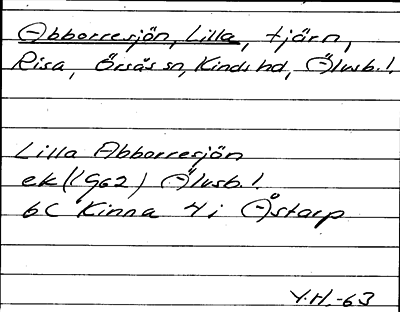 Abborresjön, Lilla, tjärn,
Risa, Örsås sn, Kinds hd, Älvsb. l.
Lilla Abborresjön
ek (1962) Älvsb. l.
6C Kinna 4 i Åstarp
Y.H.-63